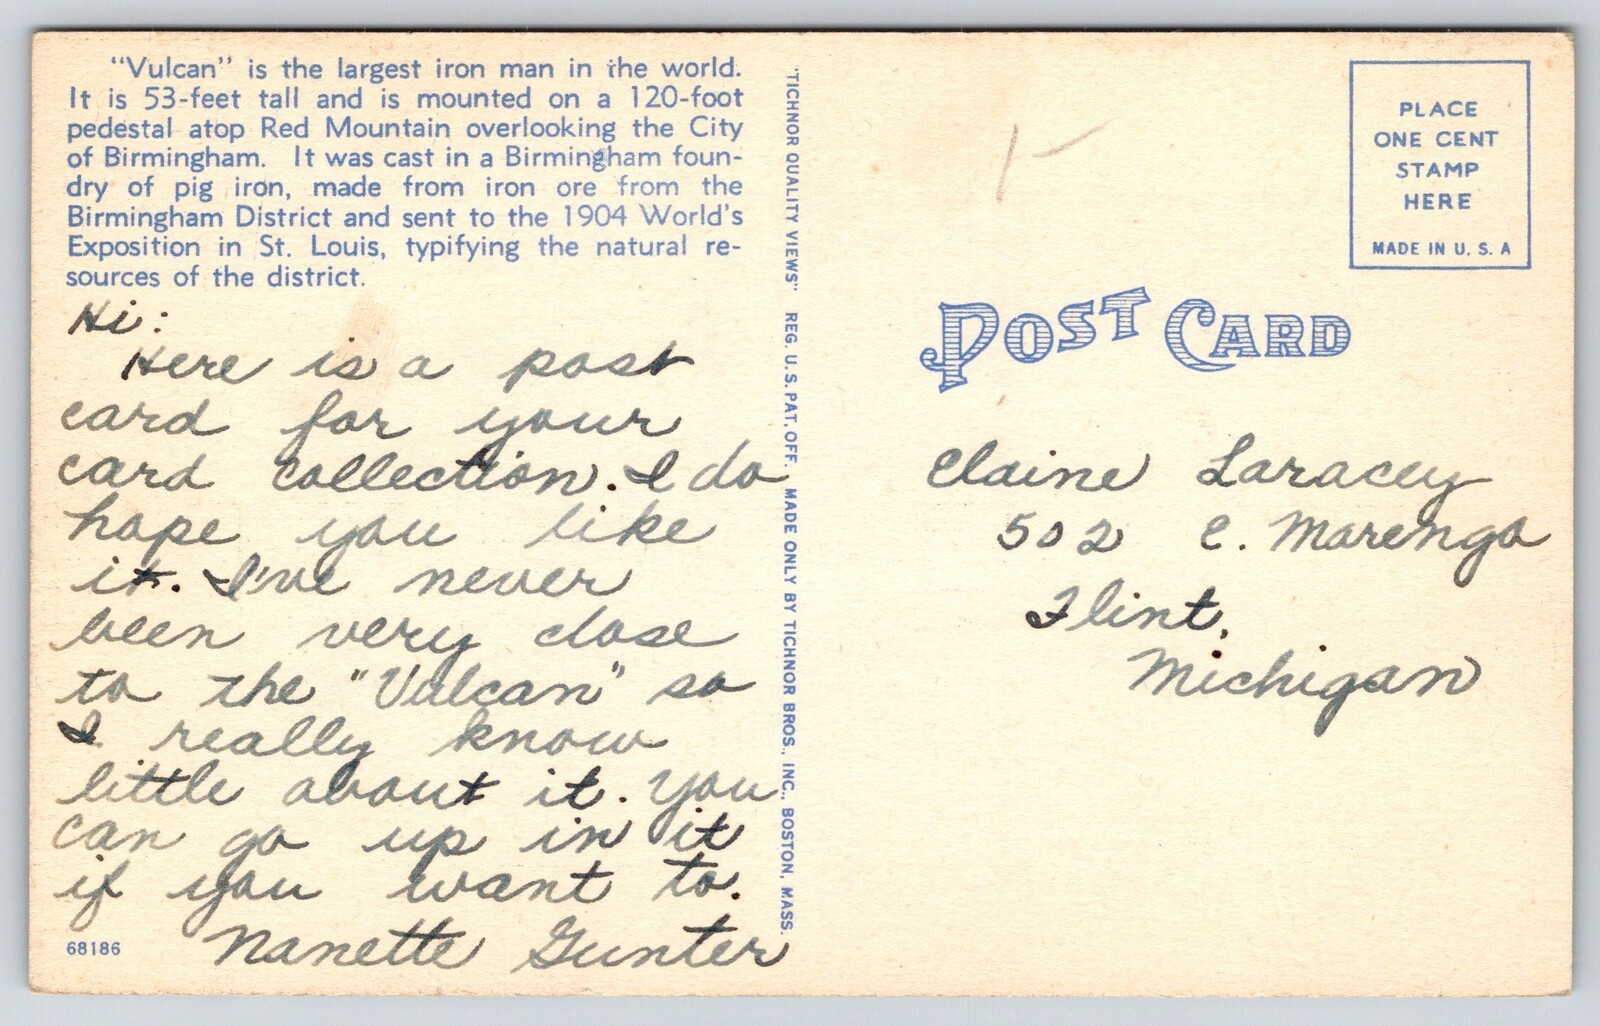 "Vulcan" is the largest iron man in the world.
It is 53-feet tall and is mounted on a 120-foot
pedestal atop Red Mountain overlooking the City
of Birmingham. It was cast in a Birmingham foun-
dry of pig iron, made from iron ore from the
Birmingham District and sent to the 1904 World's
Exposition in St. Louis, typifying the natural re-
sources of the district.
Hi:
Here is a post
card for your
card collection. I do
hope you like
it. I've never
been very close
to the "Vulcan" so
I really know
little about it. You
can go up in it
if you want to.
Nanette Gunter
68186
"TICHNOR QUALITY VIEWS" REG. U. S. PAT. OFF. MADE ONLY BY TICHNOR BROS., INC., BOSTON, MASS.
PLACE
ONE CENT
STAMP
HERE
MADE IN U. S. A
POST CARD
Elaine Laracey
502 E. Marengo
Flint,
Michigan